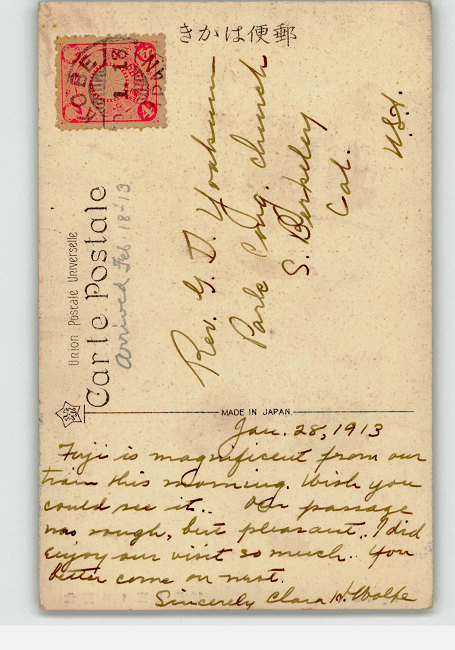 郵便はかき
KOBE
JAPAN
Union Postale Universelle
Carte Postale
Arrived Feb. 18-13
Rev. G. D. Yoakum
Park Cong. Church
S. Berkeley
Cal.
U.S.A.
MADE IN JAPAN.
Jan. 28, 1913
Fuji is magnificent from our
train this morning. Wish you
could see it. Our passage
was rough, but pleasant. I did
enjoy our visit so much. You
better come on next.
Sincerely Clara H. Wolfe